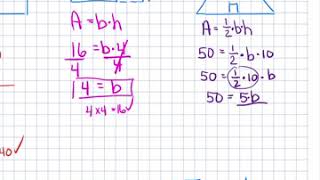 A = b·h
16 = b·4
4 4
4 = b
4 x 4 = 16 ✓
A = 1/2·b·h
50 = 1/2·b·10
50 = 1/2·10·b
50 = 5·b
40 ✓